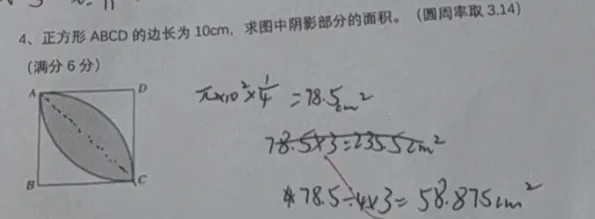 4、正方形 ABCD 的边长为 10cm，求图中阴影部分的面积。（圆周率取 3.14）
（满分 6 分）
A D
B C
π×10²×1/4=78.5cm²
78.5×3=235.5cm²
78.5÷4×3=58.875cm²